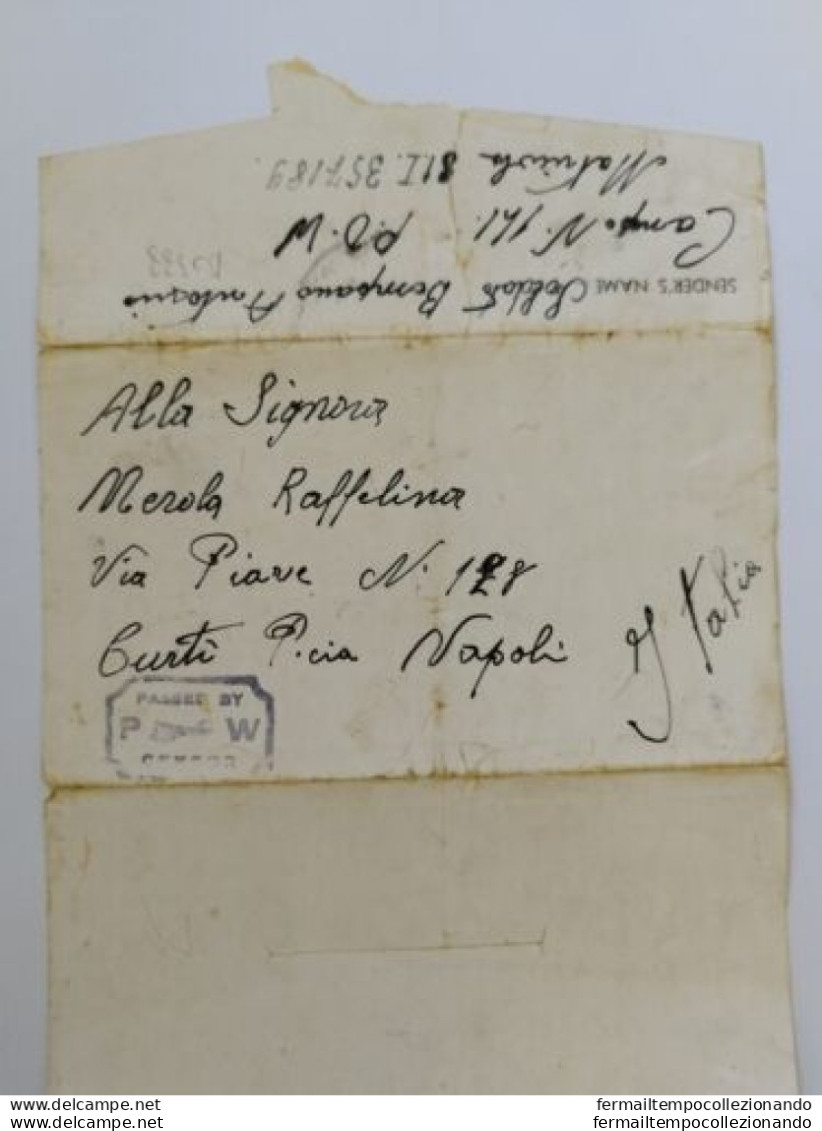 SENDER'S NAME Soldato Bompano Antonio
Campo N. 141. P.O.W
Matricola 81I.357189.
Alla Signora
Merola Raffelina
Via Piave N. 128
Curti P.cia Napoli
Italia
PASSED BY
P W
CENSOR
www.delcampe.net
your-collections
fermailtempocollezionando
fermailtempocollezionando